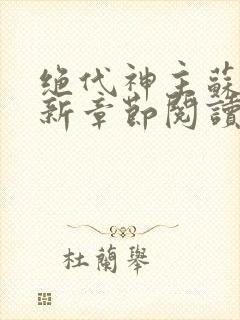 绝代神主蘇
新章節閱讀
杜蘭舉